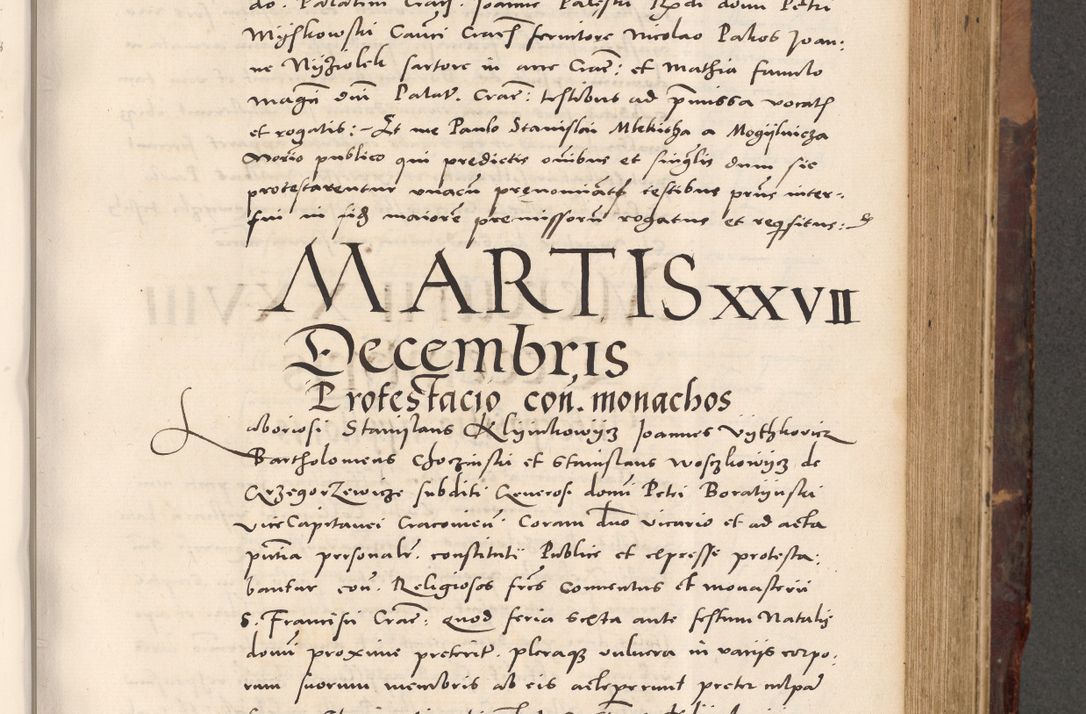 do: Palatini Crac: Joanne Paleski Rndi domi Petri
Myskowski Canci Crac: servitore Nicolao Pakos Joan:
ne Nyziolek sartore in arce Crac: et Mathia famulo
magci dni Palat. Crac: testibus ad pmissa vocatis
et rogatis: Et me Paulo Stanislai Mlekicha a Mogylnicza
Notrio publico qui predictis omibus et singlis dum sic
protestarentur unacu prenominatis testibus pnus inter:
fui in fide maiore premissoru rogatus et reqsitus:
MARTIS XXVII
Decembris
Protestacio con. monachos
Laboriosi Stanislaus Klymkowycz Joannes Vythkovicz
Bartholomeus Choczinski et Stanislaus Woszkowycz de
Grzegorzewicze subditi Generosi domi Petri Boratynski
ViceCapitanei Cracomen: Coram dno vicario et ad acta
pntia personalr. constituti Publice et expresse protesta:
bantur con. Religiosos fres Conventus et monasterii
S. Francisci Crac: quod feria sexta ante festum Natalis
domi proxime preterit. pleraq vulnera in variis corpo:
rum suorum membris ab eis acceperunt preter culpa